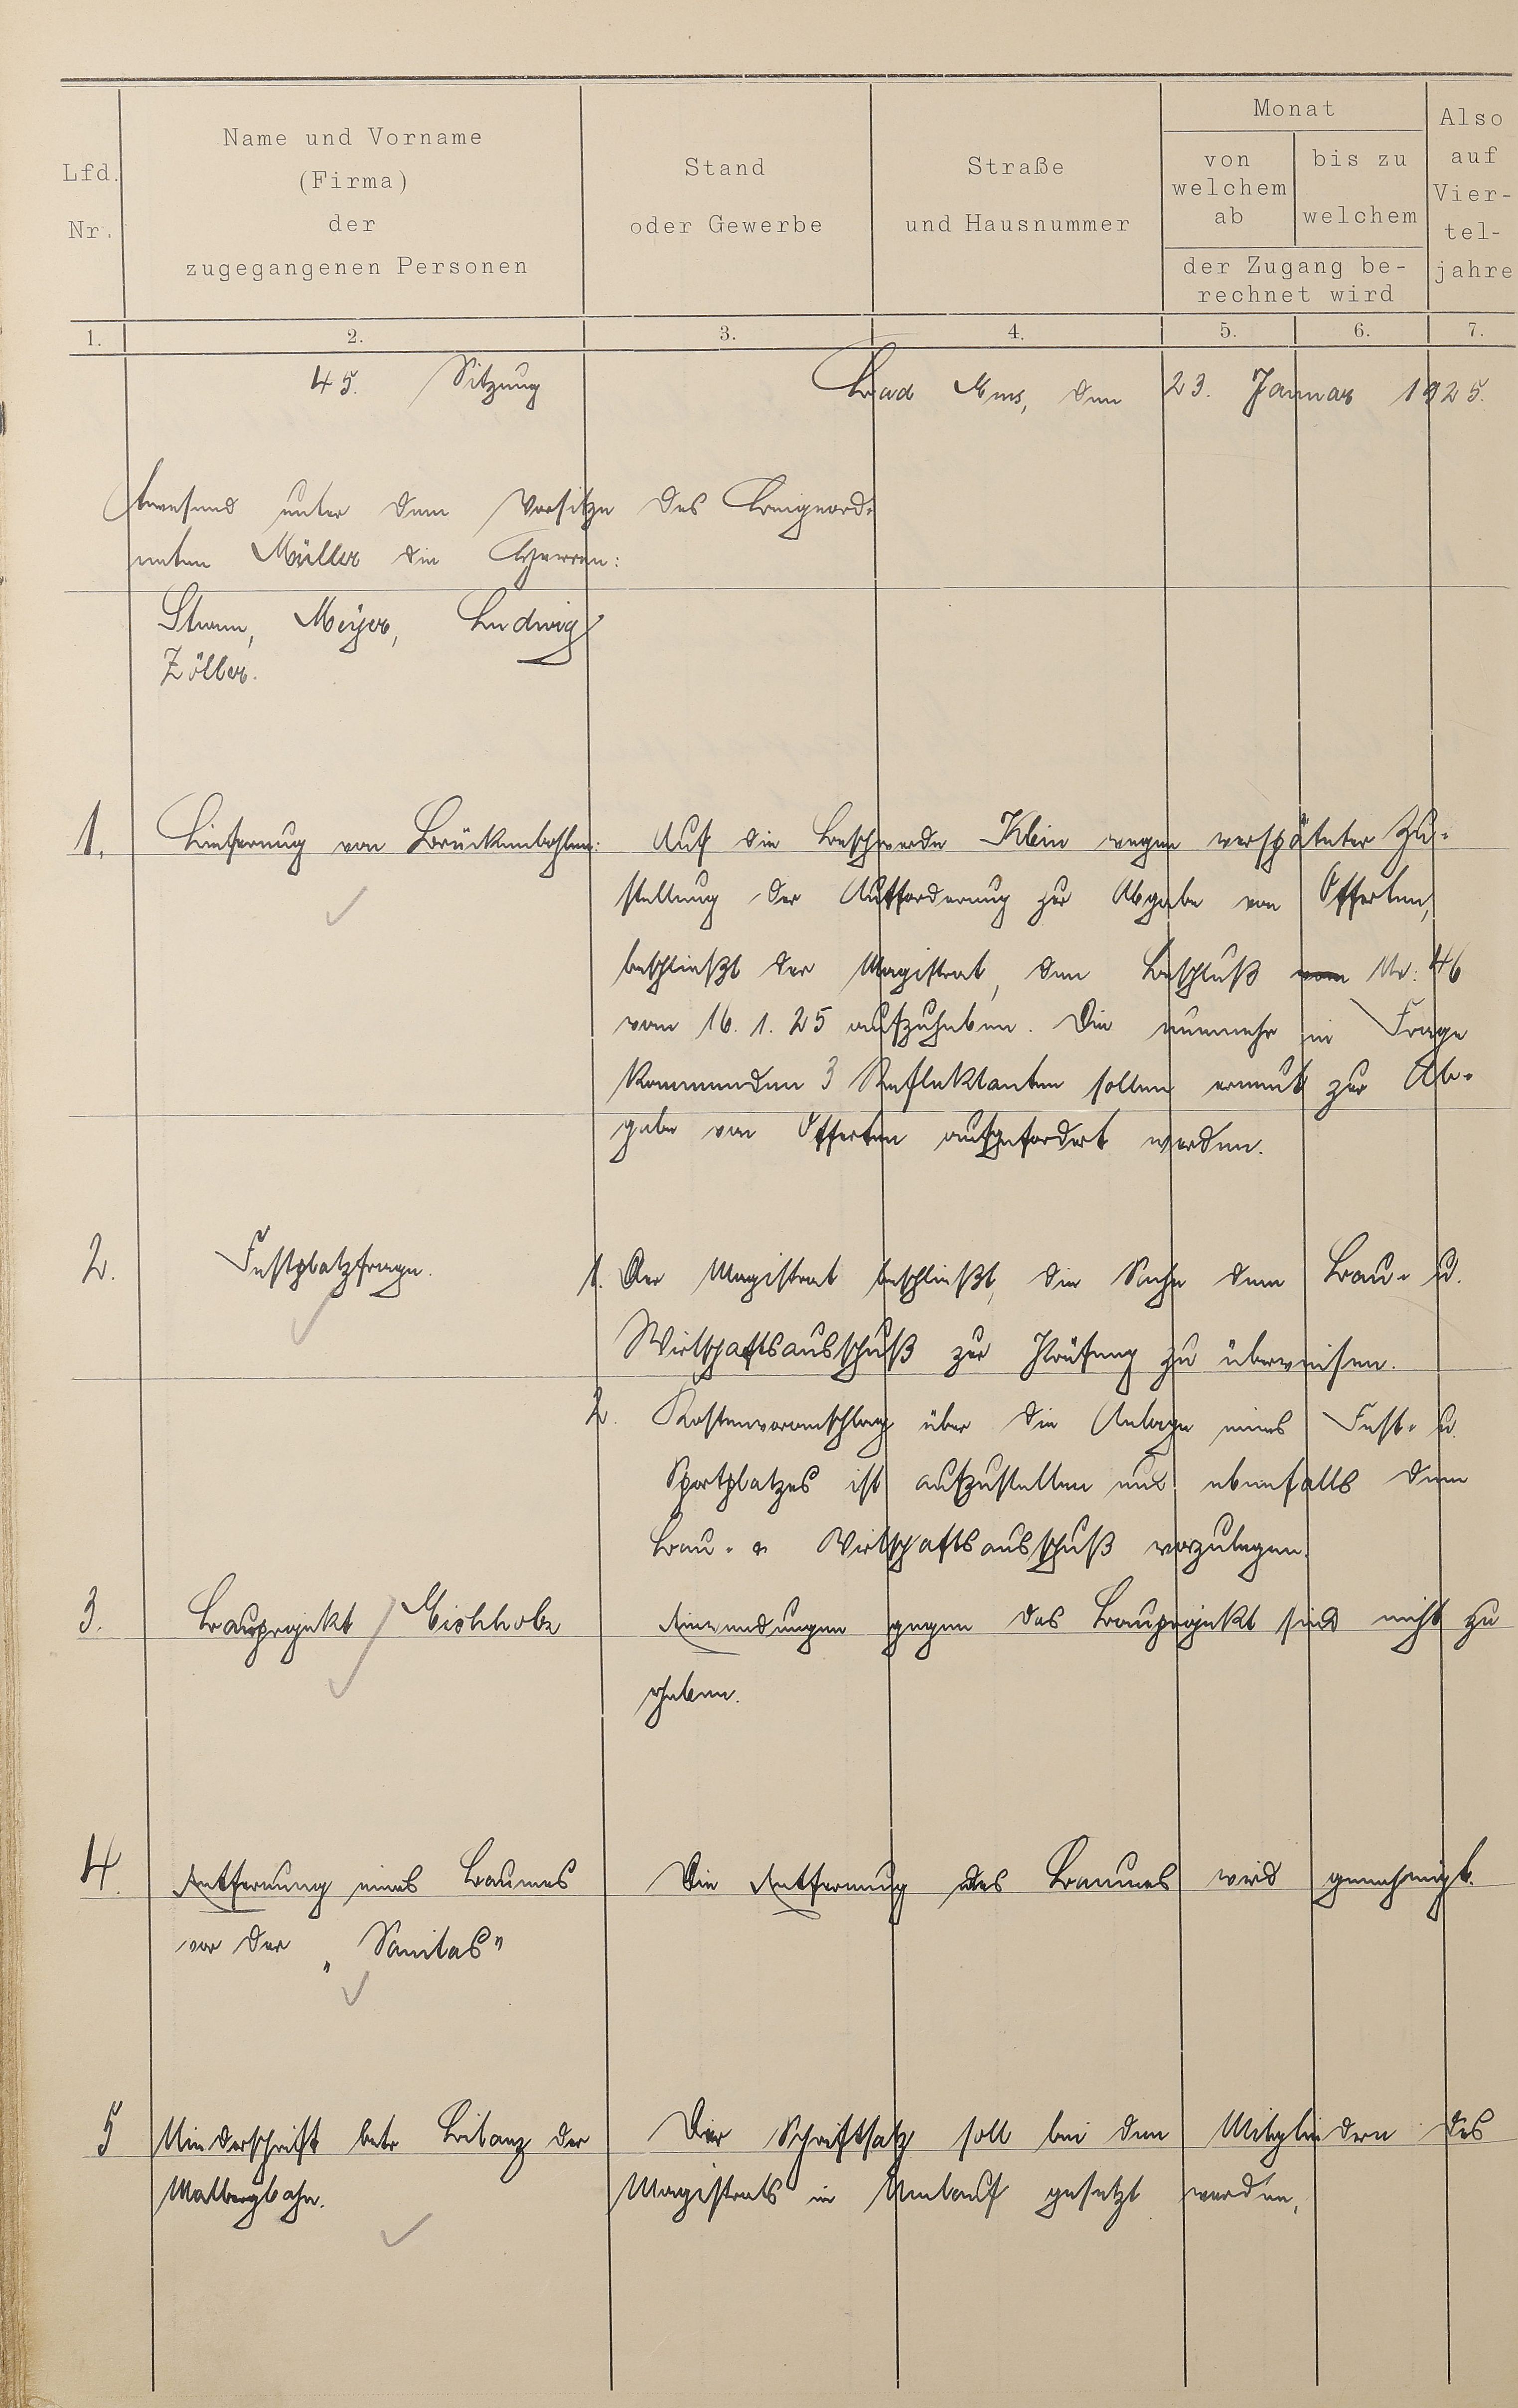 Lfd. Nr.
Name und Vorname
(Firma)
der
zugegangenen Personen
Stand
oder Gewerbe
Straße
und Hausnummer
Monat
von
welchem
ab
bis zu
welchem
der Zugang be-
rechnet wird
Also
auf
Vier-
tel-
jahre
1. 2. 3. 4. 5. 6. 7.
45. Sitzung Bad Ems, den 23. Januar 1925.
Anwesend unter dem Vorsitze des Beigeord-
neten Müller die Herren:
Sturm, Meyer, Ludwig
Zöller.
1. Lieferung von Brückenbohlen: Auf die Beschwerde Klein wegen verspäteter Zu-
stellung der Aufforderung zur Abgabe von Offerten,
beschließt der Magistrat, den Beschluß vom Nr: 46
vom 16. 1. 25 aufzuheben. Die nunmehr in Frage
kommenden 3 Reflektanten sollen erneut zur Ab-
gabe von Offerten aufgefordert werden.
2. Festplatzfrage. 1. Der Magistrat beschließt, die Sache dem Bau- u.
Wirtschaftsausschuß zur Prüfung zu überweisen.
2. Kostenvoranschlag über die Anlage eines Fest- u.
Sportplatzes ist aufzustellen und ebenfalls dem
Bau- u. Wirtschaftsausschuß vorzulegen.
3. Bauprojekt Eichholz Einwendungen gegen das Bauprojekt sind nicht zu
erheben.
4. Entfernung eines Baumes Die Entfernung des Baumes wird genehmigt.
vor der „Sanitas"
5 Niederschrift betr Bilanz der Der Schriftsatz soll bei den Mitgliedern des
Malbergbahn. Magistrats in Umlauf gesetzt werden.